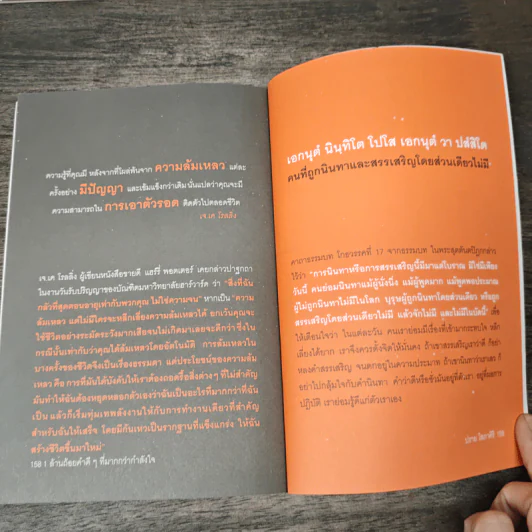 ความรู้ที่คุณมี หลังจากที่โผล่พ้นจาก ความล้มเหลว แต่ละ
ครั้งอย่าง มีปัญญา และเข้มแข็งกว่าเดิม นั่นแปลว่าคุณจะมี
ความสามารถใน การเอาตัวรอด ติดตัวไปตลอดชีวิต
เจ.เค โรลลิ่ง
เจ.เค โรลลิ่ง ผู้เขียนหนังสือขายดี แฮร์รี่ พอตเตอร์ เคยกล่าวปาฐกถา
ในงานวันรับปริญญาของบัณฑิตมหาวิทยาลัยฮาร์วาร์ด ว่า "สิ่งที่ฉัน
กลัวที่สุดตอนอายุเท่ากับพวกคุณ ไม่ใช่ความจน" หากเป็น "ความ
ล้มเหลว แต่ไม่มีใครจะหลีกเลี่ยงความล้มเหลวได้ ยกเว้นคุณจะ
ใช้ชีวิตอย่างระมัดระวังมากเสียจนไม่เกิดมาเลยจะดีกว่า ซึ่งใน
กรณีนั้นเท่ากับว่าคุณได้ล้มเหลวโดยอัตโนมัติ การล้มเหลวใน
บางครั้งของชีวิตจึงเป็นเรื่องธรรมดา แต่ประโยชน์ของความล้ม
เหลว คือ การที่มันได้บังคับให้เราต้องถอดรื้อสิ่งต่างๆ ที่ไม่สำคัญ
มันทำให้ฉันต้องหยุดหลอกตัวเองว่าฉันเป็นอะไรที่มากกว่าที่ฉัน
เป็น แล้วก็เริ่มทุ่มเทพลังงานให้กับการทำงานเดียวที่สำคัญ
สำหรับฉันให้เสร็จ โดยมีก้นเหวเป็นรากฐานที่แข็งแกร่ง ให้ฉัน
สร้างชีวิตขึ้นมาใหม่"
158 | ล้านถ้อยคำดี ๆ ที่มากกว่ากำลังใจ
เอกนฺตํ นินฺทิโต โปโส เอกนฺตํ วา ปสํสิโต
คนที่ถูกนินทาและสรรเสริญโดยส่วนเดียวไม่มี
คาถาธรรมบท โกธวรรคที่ 17 จากธรรมบท ในพระสุตตันตปิฎกกล่าว
ไว้ว่า "การนินทาหรือการสรรเสริญนี้มีมาแต่โบราณ มิใช่มีเพียง
วันนี้ คนย่อมนินทาแม้ผู้นั่งนิ่ง แม้ผู้พูดมาก แม้พูดพอประมาณ
ผู้ไม่ถูกนินทาไม่มีในโลก บุรุษผู้ถูกนินทาโดยส่วนเดียว หรือถูก
สรรเสริญโดยส่วนเดียวไม่มีแล้ว จักไม่มี และไม่มีในบัดนี้" เพื่อ
ให้เตือนใจว่า ในแต่ละวัน คนเราย่อมมีเรื่องที่เข้ามากระทบใจ หลีก
เลี่ยงได้ยาก เราจึงควรตั้งจิตให้มั่นคง ถ้าเขาสรรเสริญเราว่าดี ก็อย่า
หลงคำสรรเสริญ จนตกอยู่ในความประมาท ถ้าเขานินทาว่าเราเลว ก็
อย่าไปกลุ้มใจกับคำนินทา คำว่าดีหรือชั่วมันอยู่ที่ตัวเรา อยู่ที่ผลการ
ปฏิบัติ เราย่อมรู้ดีแก่ตัวเราเอง
159